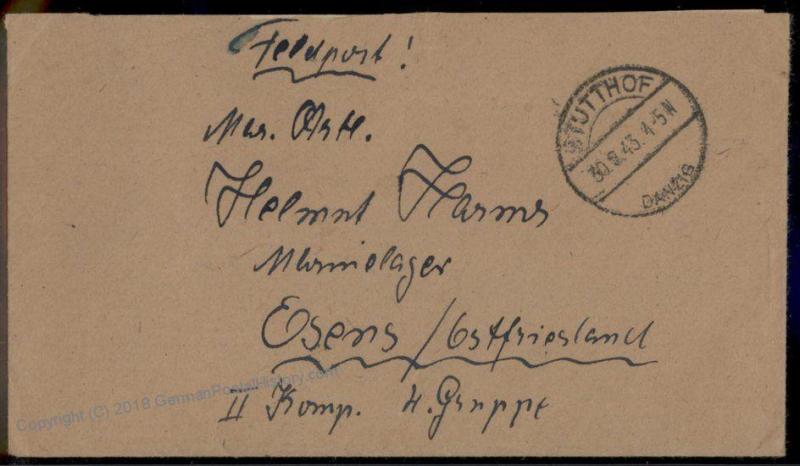 Feldpost!
Mar. Artl.
Helmut Harms
Marinelager
Esens/Ostfriesland
II Komp. 4. Gruppe
STUTTHOF
30.9.43.4-5N
DANZIG
Copyright (C) 2018 GermanPostalHistory.com